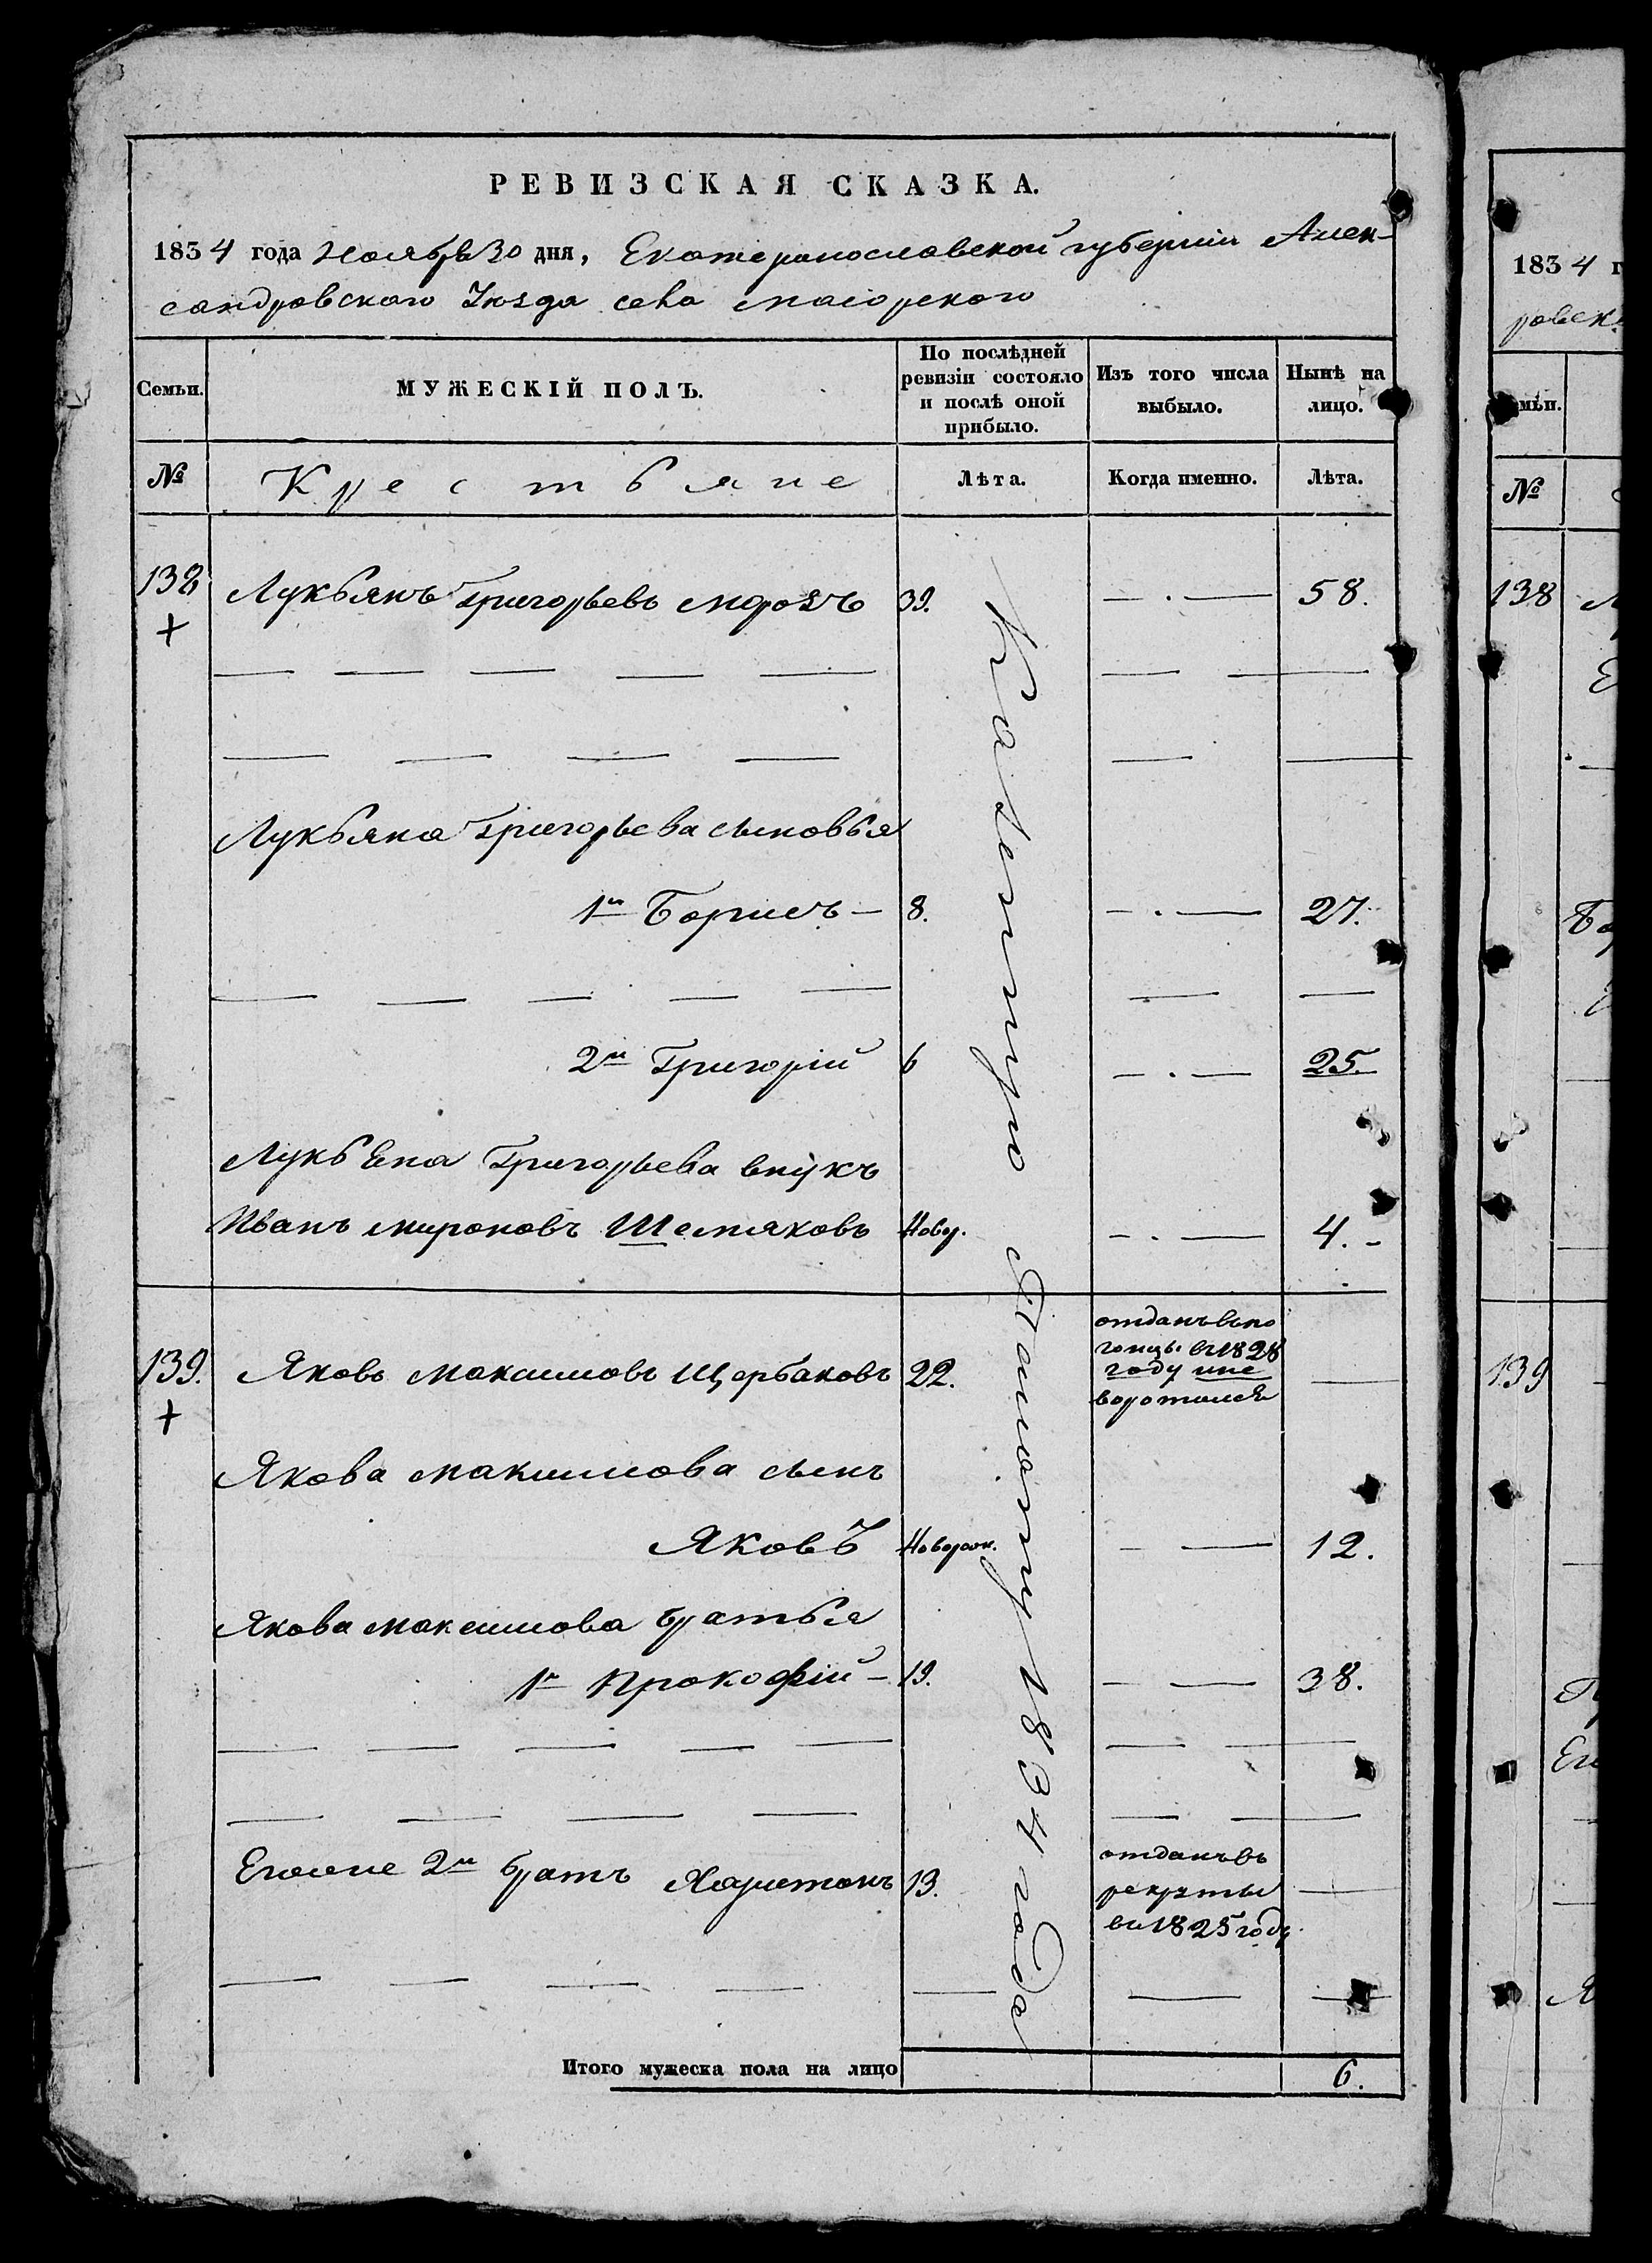 РЕВИЗСКАЯ СКАЗКА.
1834 года Ноября 30 дня, Екатеринославской губерніи Алек-
сандровского Уѣзда села Маіорского
Семьи.
МУЖЕСКІЙ ПОЛЪ.
По послѣдней ревизіи состояло и послѣ оной прибыло.
Изъ того числа выбыло.
Нынѣ на лицо.
№ Крестьяне Лѣта. Когда именно. Лѣта.
138 Лукьянъ Григорьевъ Морозъ 39. 58.
Лукьяна Григорьева сыновья
1й Борисъ 8. 27.
2й Григорій 6 25.
Лукьяна Григорьева внукъ
Иванъ Мироновъ Шемяковъ Новор. 4.
139. Яковъ Максимовъ Щербаковъ 22. отданъ въ по
гонцы въ 1828
году и не
воротился
Якова Максимова сынъ
Яковъ Новорож. 12.
Якова Максимова братья
1й Прокофій 19. 38.
Егоже 2й братъ Харитонъ 13. отданъ въ
рекруты
въ 1825 году.
Итого мужеска пола на лицо 6.
1834 года
1834 г
ровск
мьи.
№
138
Е
Бо
139
Ег
Я